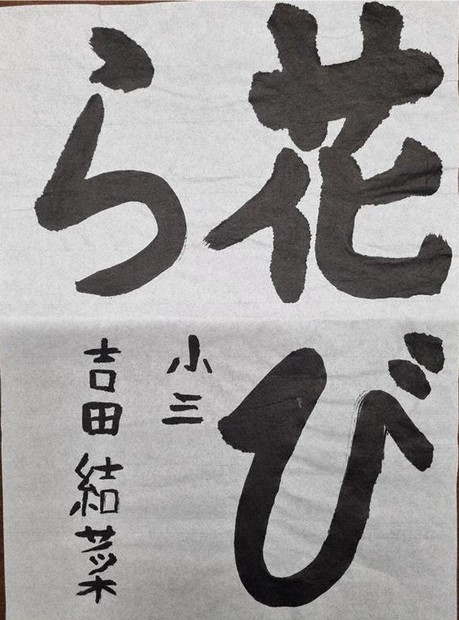 花び
ら
小三
吉田結菜